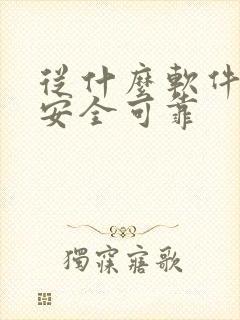 從什麼軟件
安全可靠
獨寐寤歌